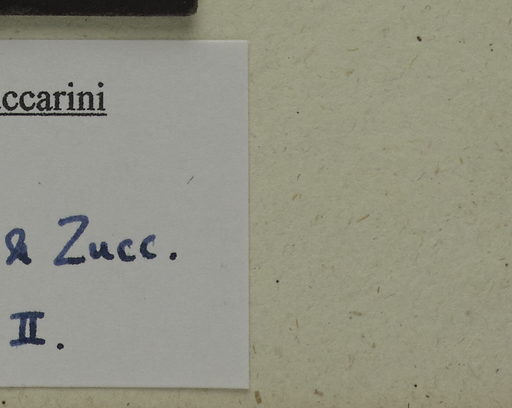 ccarini
& Zucc.
II.